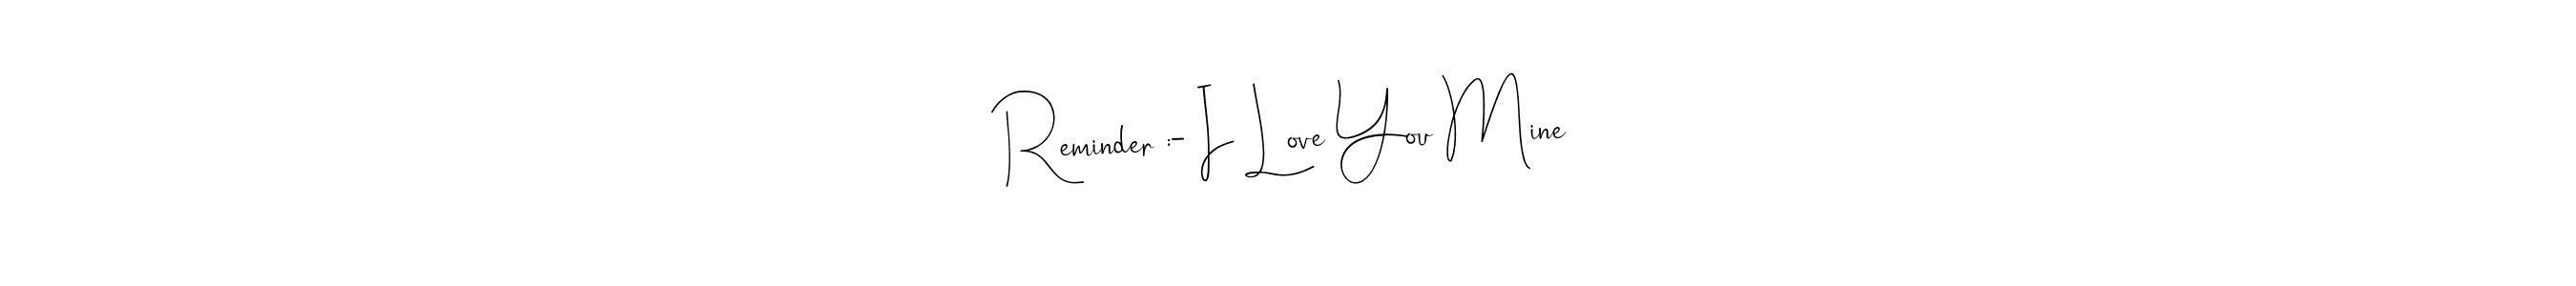 Reminder :- I Love You Mine